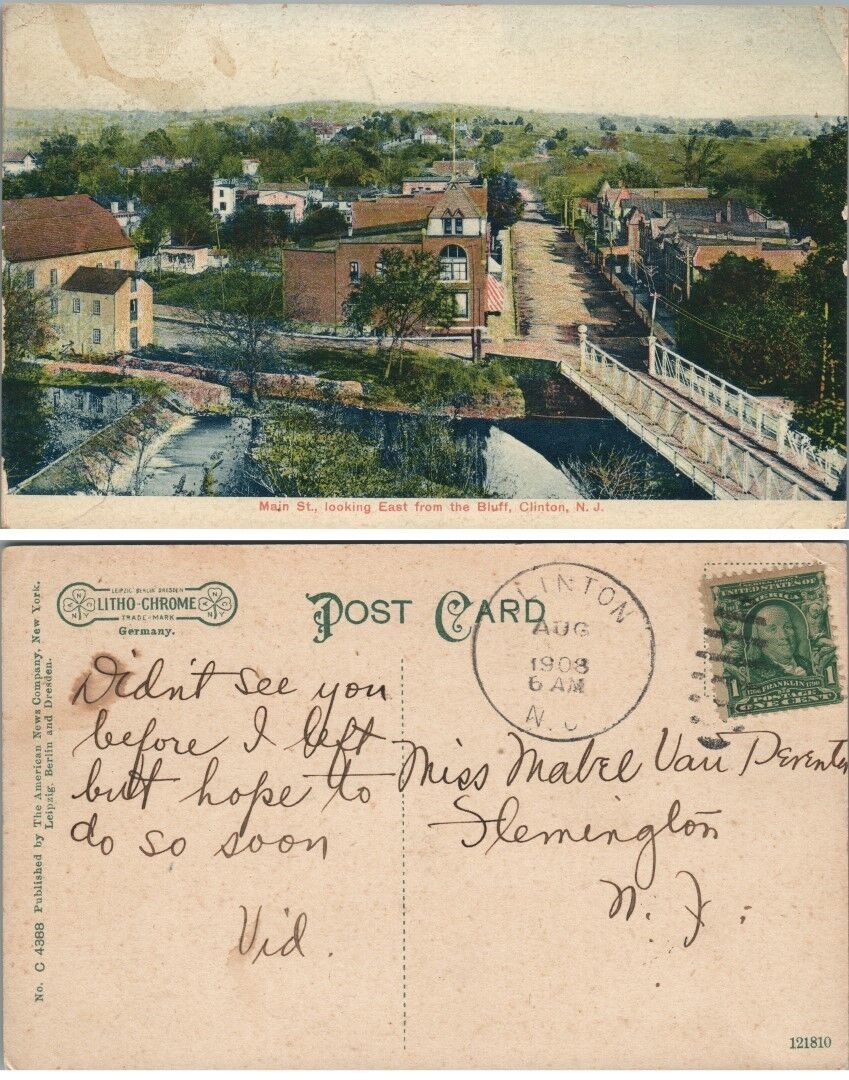 Main St., looking East from the Bluff, Clinton, N. J.
No. C 4388 Published by The American News Company, New York.
Leipzig. Berlin and Dresden.
LEIPZIG BERLIN DRESDEN
LITHO-CHROME
TRADE-MARK
Germany.
POST CARD
CLINTON
AUG
1908
6 AM
N.J.
UNITED STATES OF
AMERICA
1 FRANKLIN 1
POSTAGE
ONE CENT
Didn't see you
before I left
but hope to
do so soon
Vid.
Miss Mabel Van Deventer
Flemington
N. J.
121810